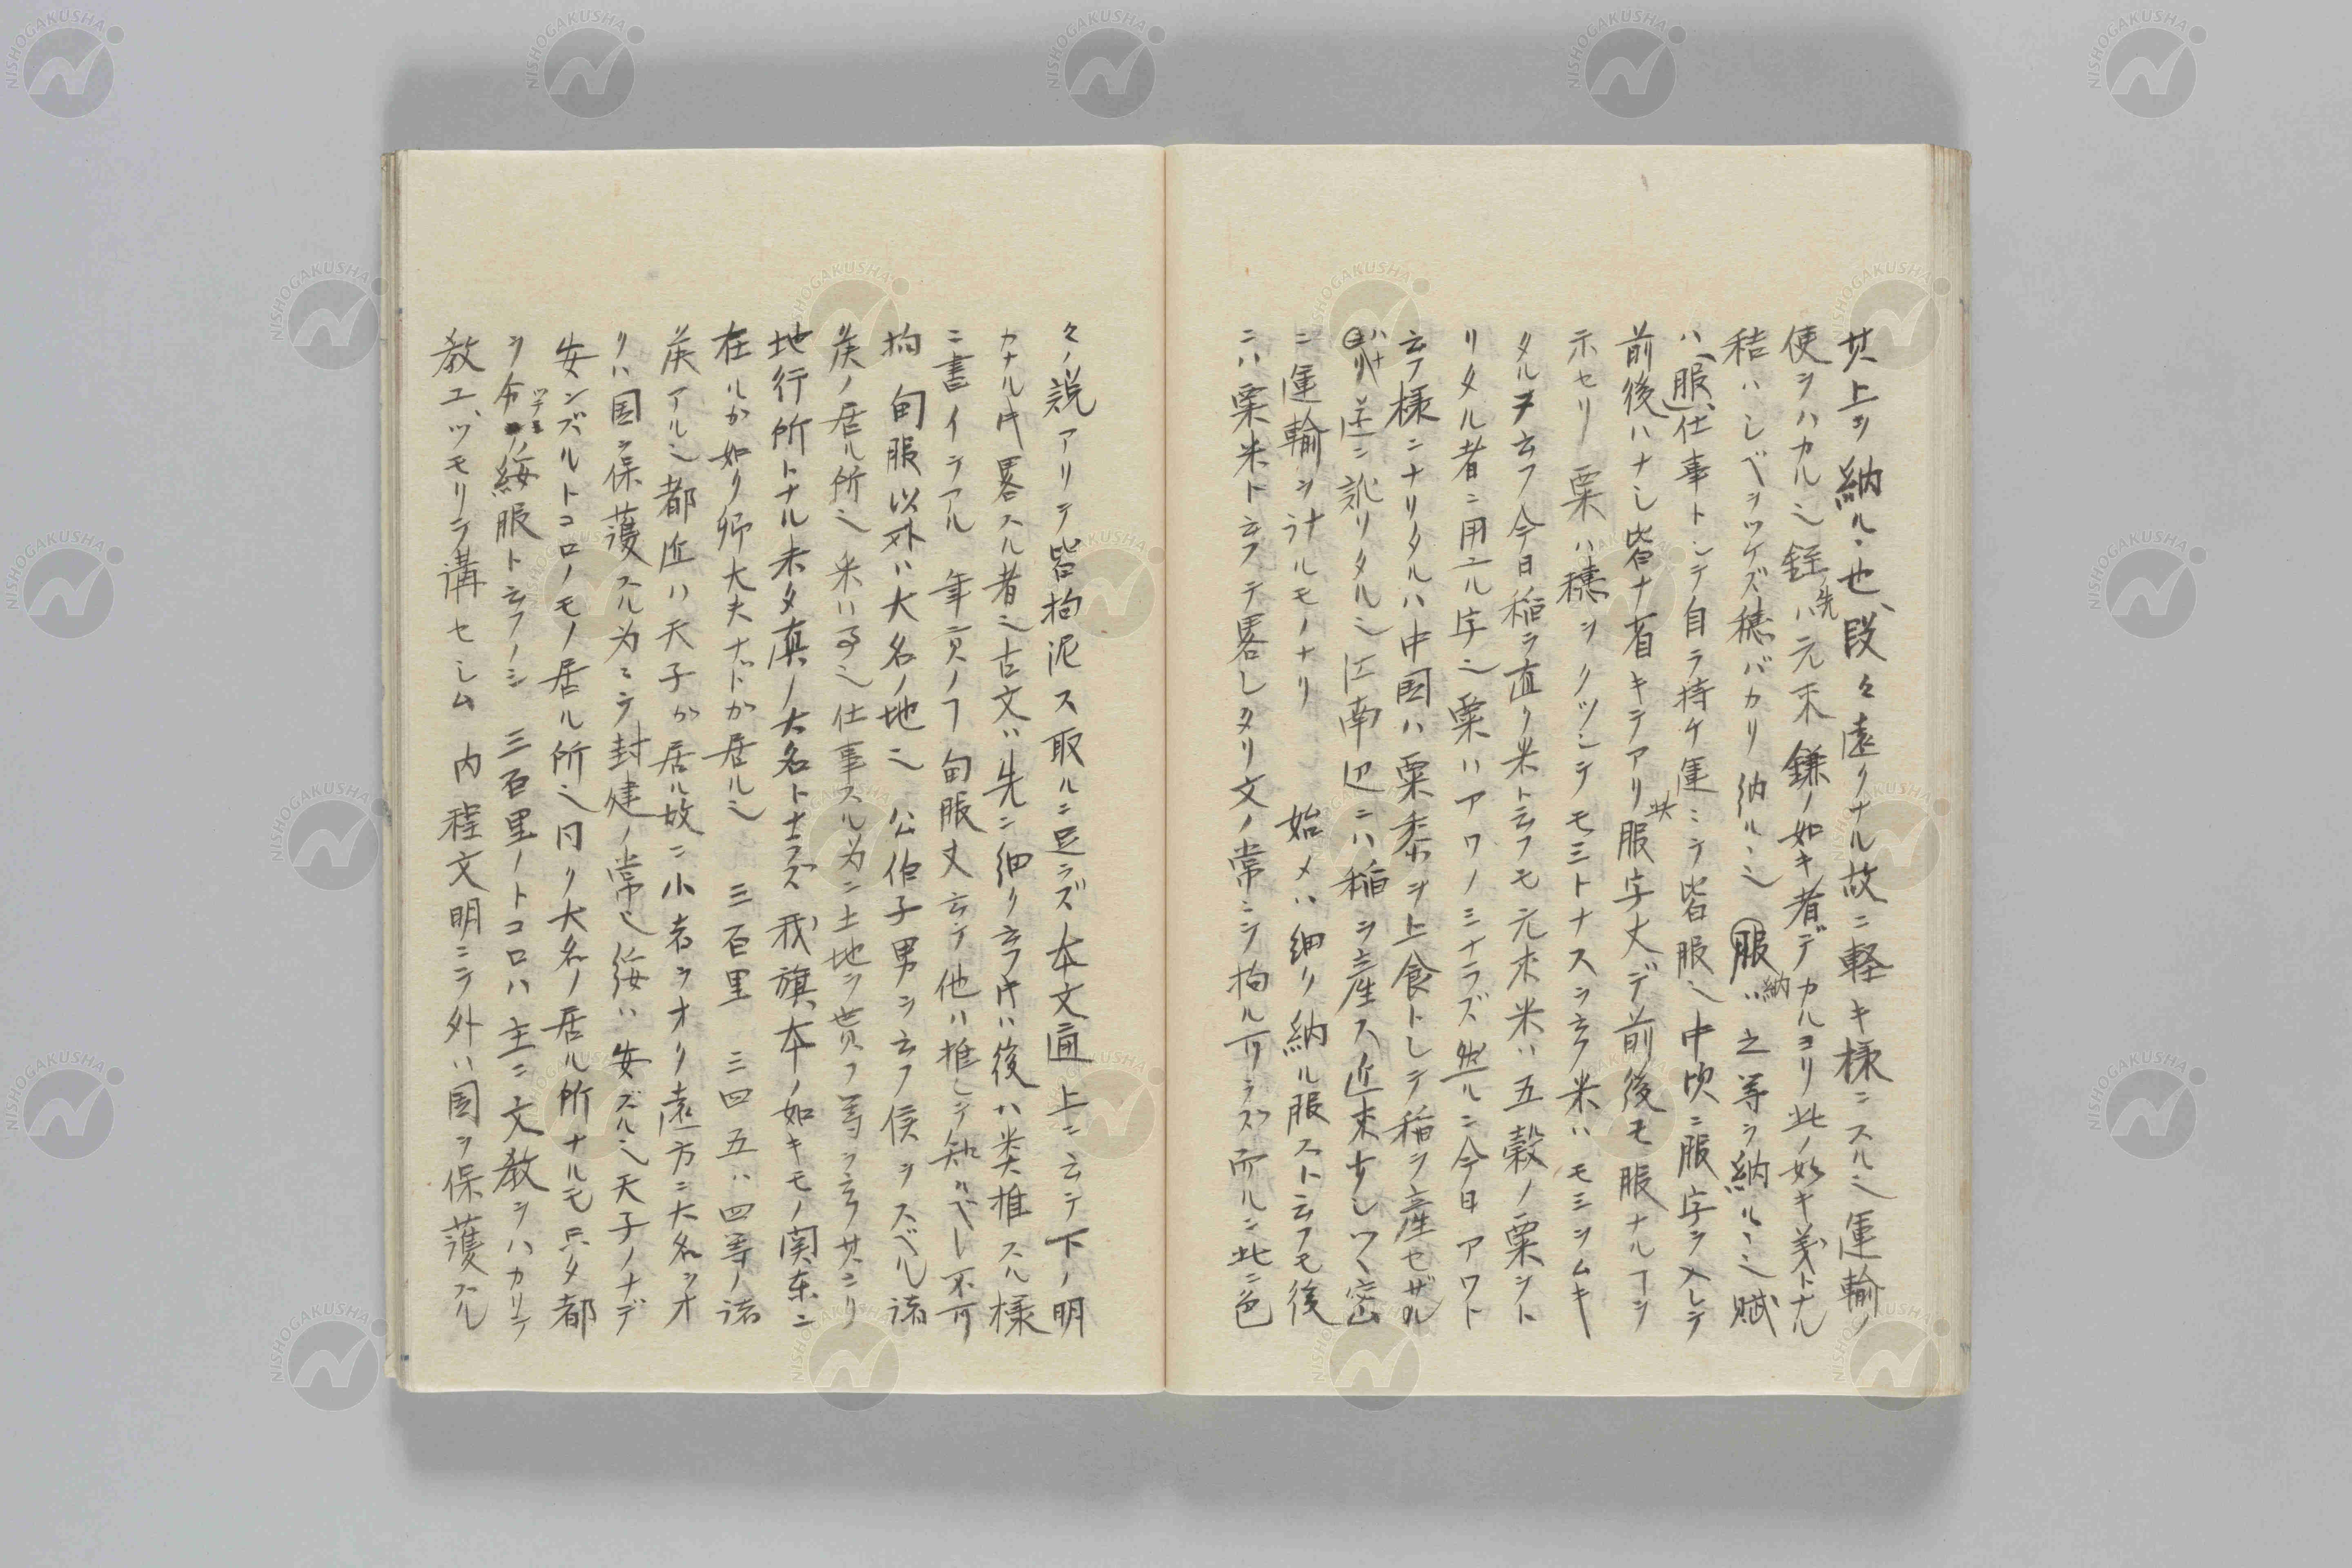 其上ヲ納ルヽ也、段々遠クナル故ニ軽キ様ニスル也運輸ノ
使ヲハカル也銍ハ元来鎌ノ如キ者デカルヨリ此ノ如キ義トナル
秸ハシベヲツケズ穂バカリ納ルヽ也 服ハ之等ヲ納ルヽ也賦
ハ服仕事トシテ自ラ持ケ運ミテ皆服也中頃ニ服字ヲ入レテ
前後ハナシ皆ナ省キテアリ服字丈デ前後モ服ナルヿヲ
示セリ 粟ハ穂ヲクツシテモミトナスヲ云フ米ハモミヲムキ
タルヲ云フ今日稲ヲ直ク米ト云フモ元来米ハ五穀ノ粟ヲト
リタル者ニ用エル字也粟ハアワノミナラズ然ルニ今日アワト
云フ様ニナリタルハ中国ハ粟黍ヲ上食トシテ稲ヲ産セザル
ヨリ逆ニ訛リタル也江南辺ニハ稲ヲ産ス近来少シツヽ密
ニ運輸ヲ計ルモノナリ 始メハ細ク納ル服スト云フモ後
ニハ粟米ト云フテ畧シタリ文ノ常ニテ拘ル可ラズ而ルニ此ニ色
々ノ説アリテ皆拘泥ス取ルニ足ラズ本文通上ニ云テ下ノ明
カナル片畧スル者也古文ハ先ニ細ク云フ片ハ後ハ类推スル様
ニ書イテアル 年貢ノヿ 甸服丈云テ他ハ推シテ知ルベシ不可
拘 甸服以外ハ大名ノ地也 公伯子男ヲ云フ侯ヲスベル諸
侯ノ居ル所也 采ハ事也仕事スル为ニ土地ヲ貰フ等ヲ云フ其ヨリ
地行所トナル未タ真ノ大名ト云ズ 我旗本ノ如キモノ関東ニ
在ルか如ク卿大夫ナドか居ル也 三百里 三四五ハ四等ノ诸
侯アル也都近ハ天子か居ル故ニ小者ヲオク遠方ニ大名ヲオ
クハ国ヲ保護スル为ミテ封建ノ常也綏ハ安ズル也天子ノナデ
安ンズルトコロノモノ居ル所也円ク大名ノ居ル所ナルモ只タ都
ヲ綏服ト云フノミ 三百里ノトコロハ主ニ文教ヲハカリテ
教エ、ツモリテ講セシム 内程文明ニテ外ハ国ヲ保護スル